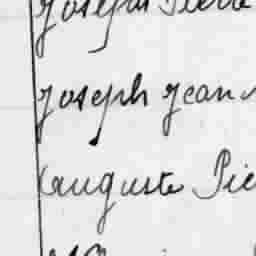 Joseph Pierre
Joseph Jean
Auguste Pie